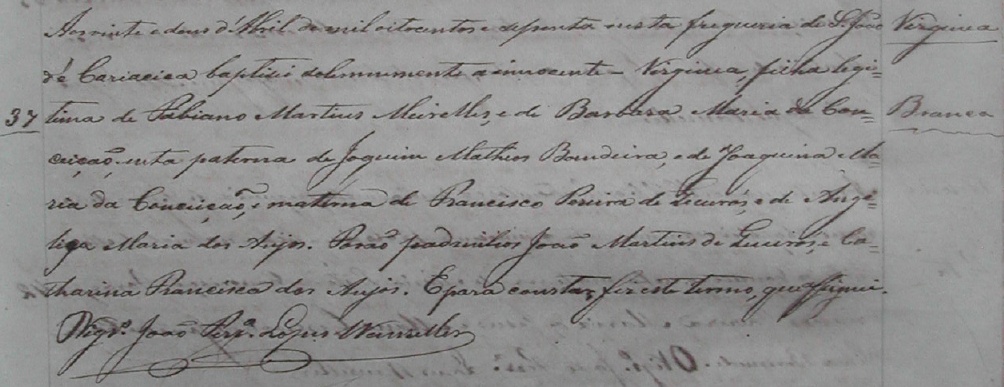 Aos vinte e dous d'Abril de mil oitocentos e setenta nesta freguesia de S. João Virginia
de Cariacica baptisei solemnemente a innocente - Virginia, filha legi=
37 tima de Fabiano Martins Meirelles, e de Barbara Maria da Con= Branca
ceição, neta paterna de Joquim Matheos Bandeira, e de Joaquina Ma=
ria da Conceição, e materna de Francisco Pereira de e de Ange=
liga Maria dos Anjos. Forão padrinhos João Martins de e Ca=
tharina Francisca dos Anjos. E para constar fiz este termo, que assignei.
Vigr.º João Per.ª Lopes